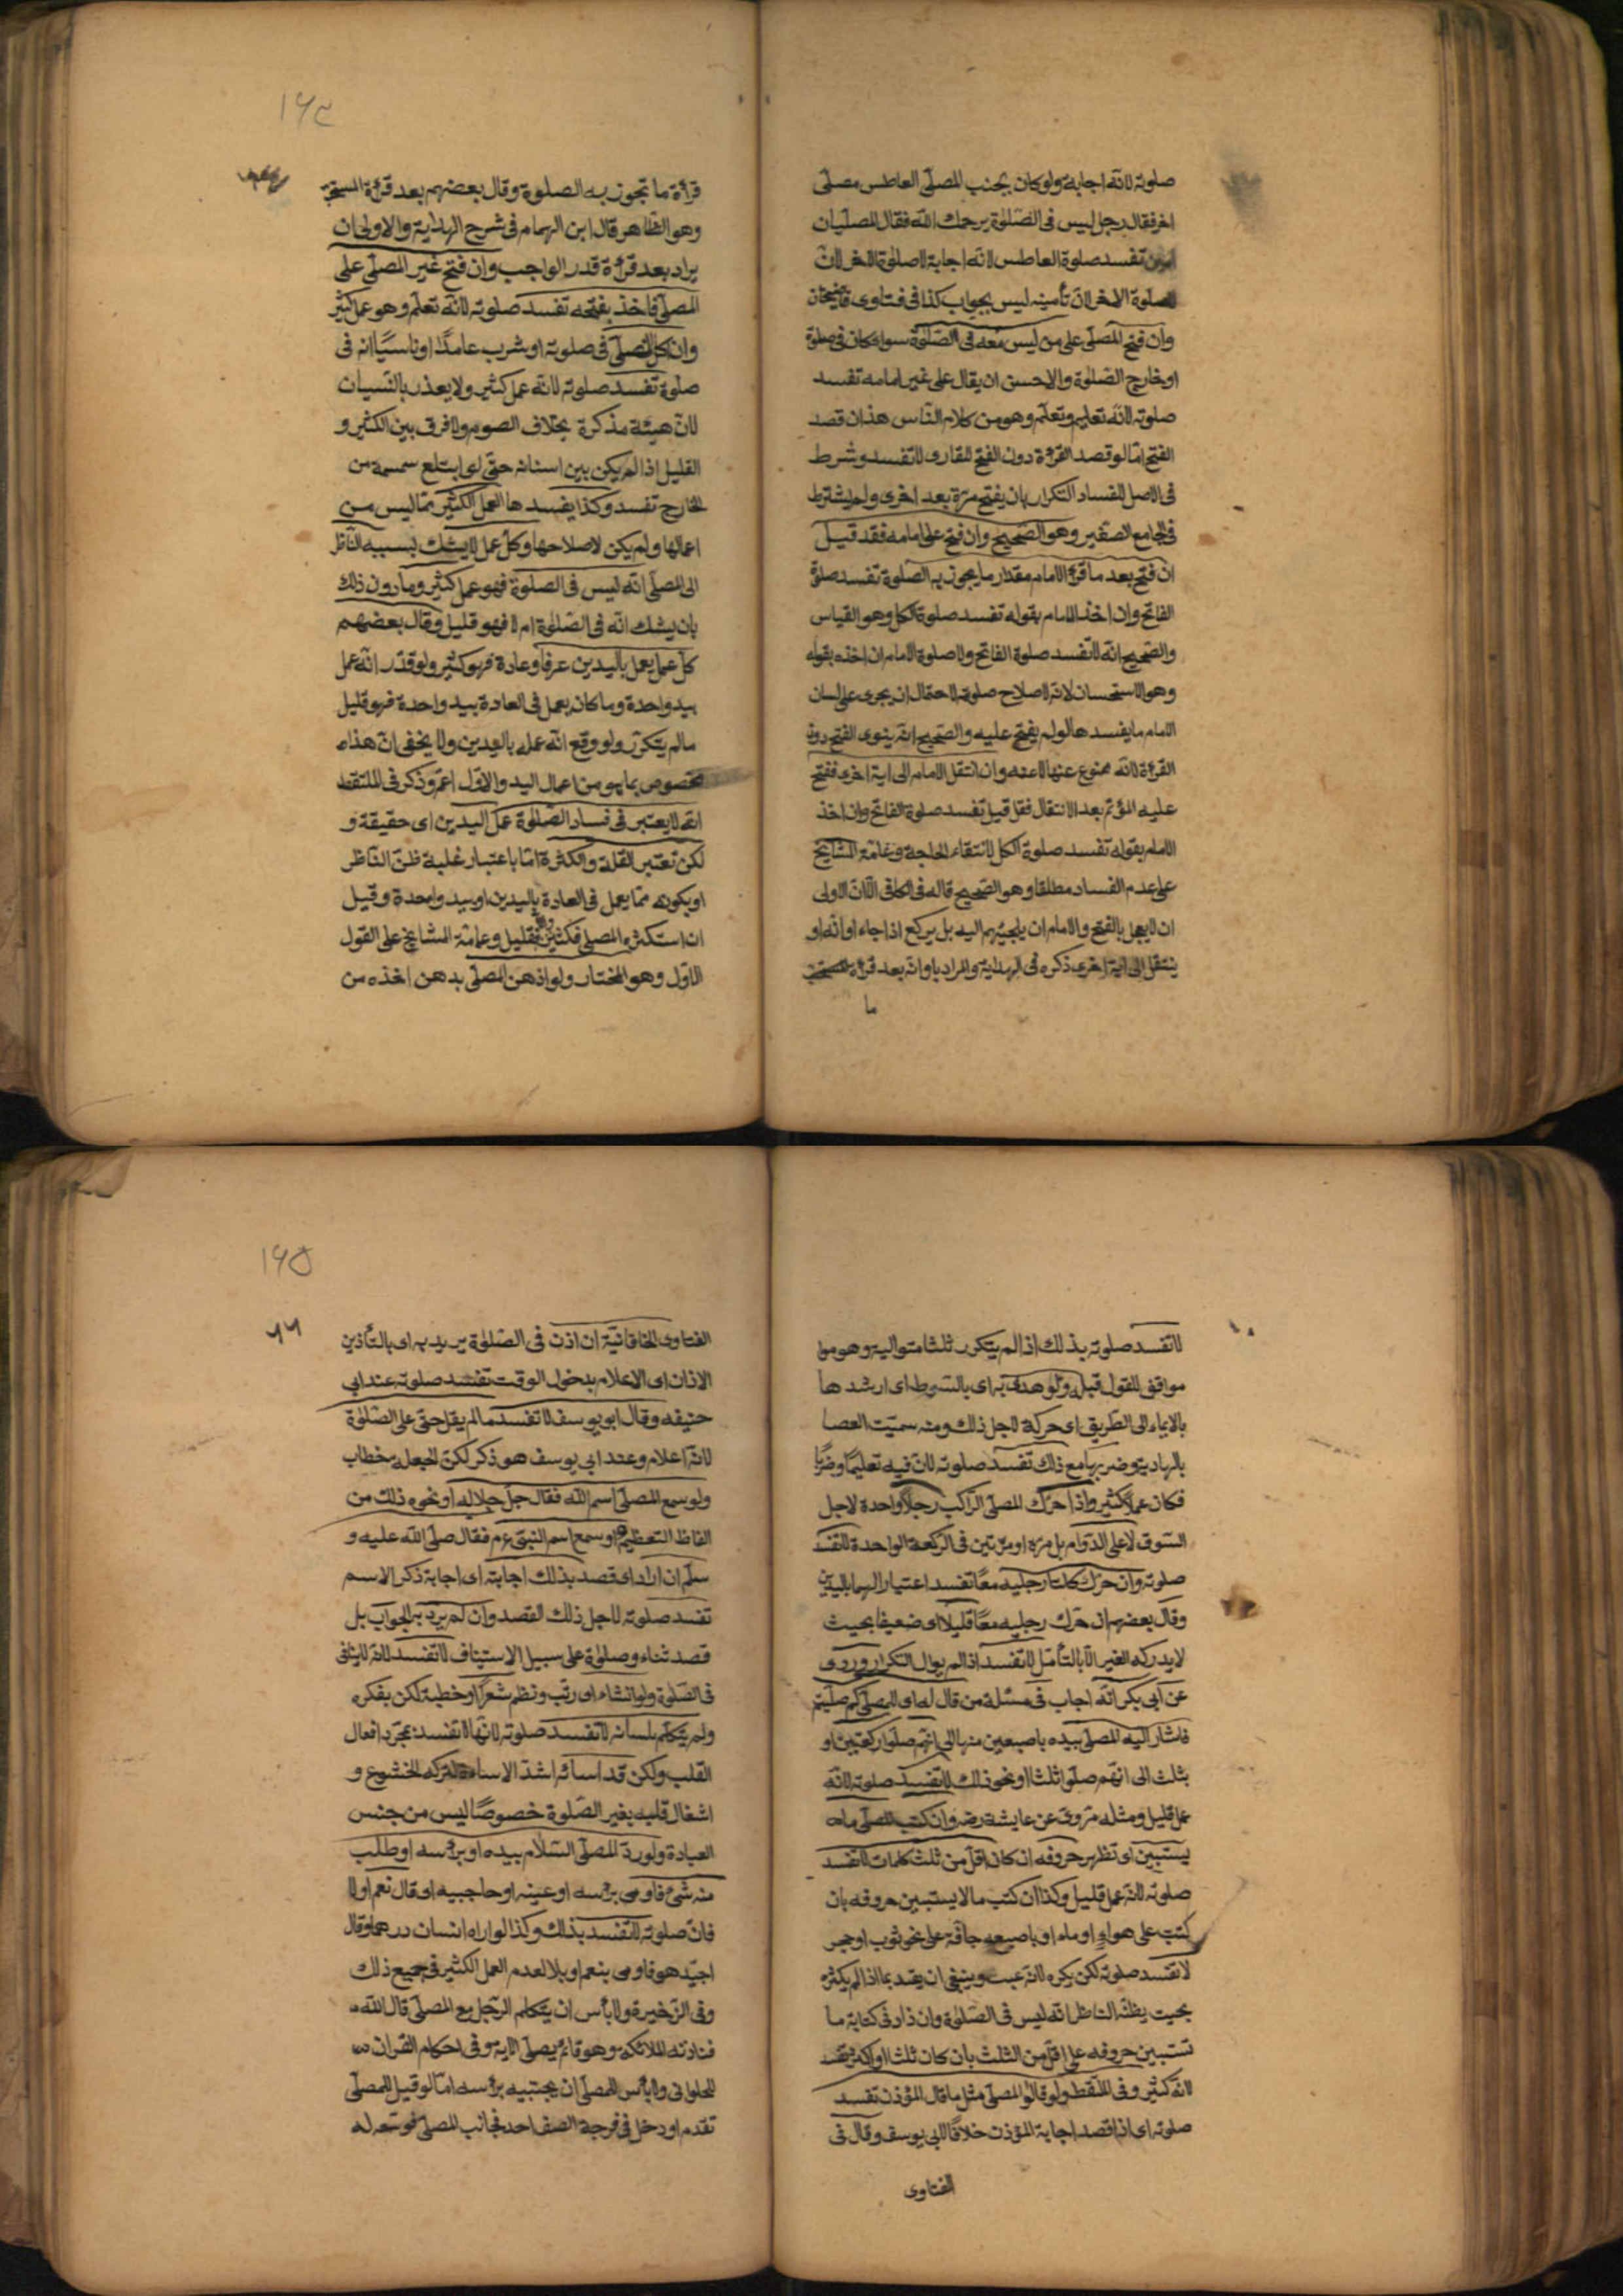 صلوته لانه اجابة ولو كان بجنب المصلّى العاطس مصلّى
اخر فقال رجل ليس فى الصّلوة يرحمك الله فقال المصليان
تفسد صلوة العاطس لانه اجابة لا صلوة الاخر لان
صلوة الاخر لان تأمينه ليس بجواب كذا فى فتاوى قاضيخان
وان فتح المصلّى على من ليس معه فى الصّلوة سواء كان فى صلوة
او خارج الصّلوة والاحسن ان يقال على غير امامه تفسد
صلوته لانّه تعليم وتعلّم وهو من كلام النّاس هذا ان قصد
الفتح امّا لو قصد القرأة دون الفتح للقارى لا تفسد وشرط
فى الاصل للفساد التكرار بان يفتح مرّة بعد اخرى ولم يشترط
فى الجامع الصّغير وهو الصّحيح وان فتح على امامه فقد قيل
ان فتح بعد ما قرأ الامام مقدار ما يجوز به الصّلوة تفسد صلوة
الفاتح وان اخذ الامام بقوله تفسد صلوة الكل وهو القياس
والصّحيح انّه لا تفسد صلوة الفاتح ولا صلوة الامام ان اخذه بقوله
وهو الاستحسان لانّه لاصلاح صلوته لاحتمال ان يجرى على لسان
الامام ما يفسدها لو لم يفتح عليه والصّحيح انّه ينوى الفتح دون
القرأة لانّه ممنوع عنها لا عنه وان انتقل الامام الى اية اخرى ففتح
عليه المؤتم بعد الانتقال فقد قيل تفسد صلوة الفاتح وان اخذ
الامام بقوله تفسد صلوة الكل لانتفاء الحاجة وعامّة المشايخ
على عدم الفساد مطلقا وهو الصّحيح قاله فى الكافى الّا انّ الاولى
ان لا يعجل بالفتح والامام ان لا يلجئهم اليه بل يركع اذا جاء اوانه او
ينتقل الى اية اخرى ذكره فى الهداية والمراد باوانه بعد قرأة المستحب
ما
١٦٤
قرأة ما تجوز به الصلوة وقال بعضهم بعد قرأة المستحب
وهو الظّاهر قال ابن الهمام فى شرح الهداية والاولى ان
يراد بعد قرأة قدر الواجب وان فتح غير المصلّى على
المصلّى فاخذ بفتحه تفسد صلوته لانّه تعلّم وهو عمل كثير
وان اكل المصلّى فى صلوته او شرب عامدًا او ناسيًا انه فى
صلوة تفسد صلوته لانّه عمل كثير ولا يعذر بالنّسيان
لانّ هيئة مذكرة بخلاف الصوم ولا فرق بين الكثير و
القليل اذا لم يكن بين اسنانه حتّى لو ابتلع سمسمة من
الخارج تفسد وكذا يفسدها العمل الكثير ممّا ليس من
اعمالها ولم يكن لاصلاحها وكلّ عمل لا يشك بسببه النّاظر
الى المصلّى انّه ليس فى الصلوة فهو عمل كثير وما دون ذلك
بان يشك انّه فى الصّلوة ام لا فهو قليل وقال بعضهم
كلّ عمل يعمل باليدين عرفا وعادة فهو كثير ولو قدّر انّه عمل
بيد واحدة وما كان يعمل فى العادة بيد واحدة فهو قليل
ما لم يتكرّر ولو وقع انّه عمله باليدين ولا يخفى انّ هذا
مخصوص بما هو من اعمال اليد والاوّل اعمّ وذكر فى الملتقط
انّه لا يعتبر فى فساد الصّلوة عمل اليدين اى حقيقة و
لكن تعتبر القلة والكثرة امّا باعتبار غلبة ظنّ النّاظر
او بكونه ممّا يعمل فى العادة باليدين او بيد واحدة وقيل
ان استكثره المصلى فكثير والّا فقليل وعامّة المشايخ على القول
الاوّل وهو المختار ولو ادّهن المصلّى بدهن اخذه من
لا تفسد صلوته بذلك اذا لم يتكرر ثلثا متوالية وهو
موافق للقول قبله ولو هداه به اى بالسّوط اى ارشدها
بالايماء الى الطّريق اى حركه لاجل ذلك ومنه سمّيت العصا
بالهادية وضربها مع ذلك تفسد صلوته لانّ فيه تعليمًا وضربًا
فكان عملًا كثيرا واذا حرّك المصلّى الرّاكب رجلًا واحدة لاجل
السّوق لا على الدّوام بل مرة او مرّتين فى الرّكعة الواحدة لا تفسد
صلوته وان حرّك كلتا رجليه معًا تفسد اعتبارا لهما باليدين
وقال بعضهم ان حرّك رجليه معًا قليلًا اى ضعيفا بحيث
لا يدركه الغير الّا بالتأمّل لا تفسد اذا لم يوال التكرار وروى
عن ابى بكر انّه اجاب فى مسئلة من قال له اى للمصلّى كم صلّيتم
فاشار اليه المصلّى بيده باصبعين منها الى انّهم صلّوا ركعتين او
بثلث الى انّهم صلّوا ثلثا او نحو ذلك لا تفسد صلوته لانّه
عمل قليل ومثله مروىّ عن عايشة رضـ وان كتب المصلّى ما
يستبين اى تظهر حروفه ان كان اقلّ من ثلث كلمات لا تفسد
صلوته لانّه عمل قليل وكذا ان كتب ما لا يستبين حروفه بان
كتب على هواء او ماء او باصبعه جافّة على نحو ثوب او حجر
لا تفسد صلوته لكن يكره لانّه عبث وينبغى ان يقيد بما اذا لم يكثر
بحيث يظنّه النّاظر انّه ليس فى الصّلوة وان زاد فى كتابة ما
تستبين حروفه على اقلّ من الثلث بان كان ثلثا او اكثر تفسد
لانّه كثير وفى الملتقط ولو قال المصلّى مثل ما قال المؤذن تفسد
صلوته اى اذا قصد اجابة المؤذن خلافًا لابى يوسف وقال فى
الفتاوى
١٦٥
٦٦
الفتاوى الخاقانيّة ان اذن فى الصّلوة يريد به اى بالتأذين
الاذان اى الاعلام بدخول الوقت تفسد صلوته عند ابى
حنيفه وقال ابو يوسف لا تفسد ما لم يقل حىّ على الصّلوة
لانّه اعلام وعند ابى يوسف هو ذكر لكن الحيعلة خطاب
ولو سمع المصلّى اسم الله فقال جلّ جلاله او نحو ذلك من
الفاظ التعظيم او سمع اسم النبىّ عم فقال صلّى الله عليه و
سلّم ان اراد اى قصد بذلك اجابته اى اجابة ذكر الاسم
تفسد صلوته لاجل ذلك القصد وان لم يرد به الجواب بل
قصد ثناء وصلوة على سبيل الاستيناف لا تفسد لانّه لا ينافى
فى الصّلوة ولو انشاء اى رتّب ونظم شعرًا او خطبة لكن بفكره
ولم يتكلّم بلسانه لا تفسد صلوته لانّها لا تفسد بمجرّد افعال
القلب ولكن قد اساء اشدّ الاساءة لتركه الخشوع و
اشغال قلبه بغير الصّلوة خصوصًا ليس من جنس
العبادة ولو ردّ المصلّى السّلام بيده او برأسه او طلب
منه شئ فاومى برأسه او عينه او حاجبيه اى قال نعم او لا
فانّ صلوته لا تفسد بذلك وكذا لو اراه انسان درهما وقال
اجيّد هو فاومى بنعم او بلا لعدم العمل الكثير فى جميع ذلك
وفى الذّخيرة ولا بأس ان يتكلم الرّجل مع المصلّى قال الله
فنادته الملائكة وهو قائم يصلّى الاية وفى احكام القران
للحلوانى ولا بأس للمصلّى ان يجيبه برأسه امّا لو قيل للمصلّى
تقدم او دخل فى فرجة الصف احد فجانب المصلّى توسعة له